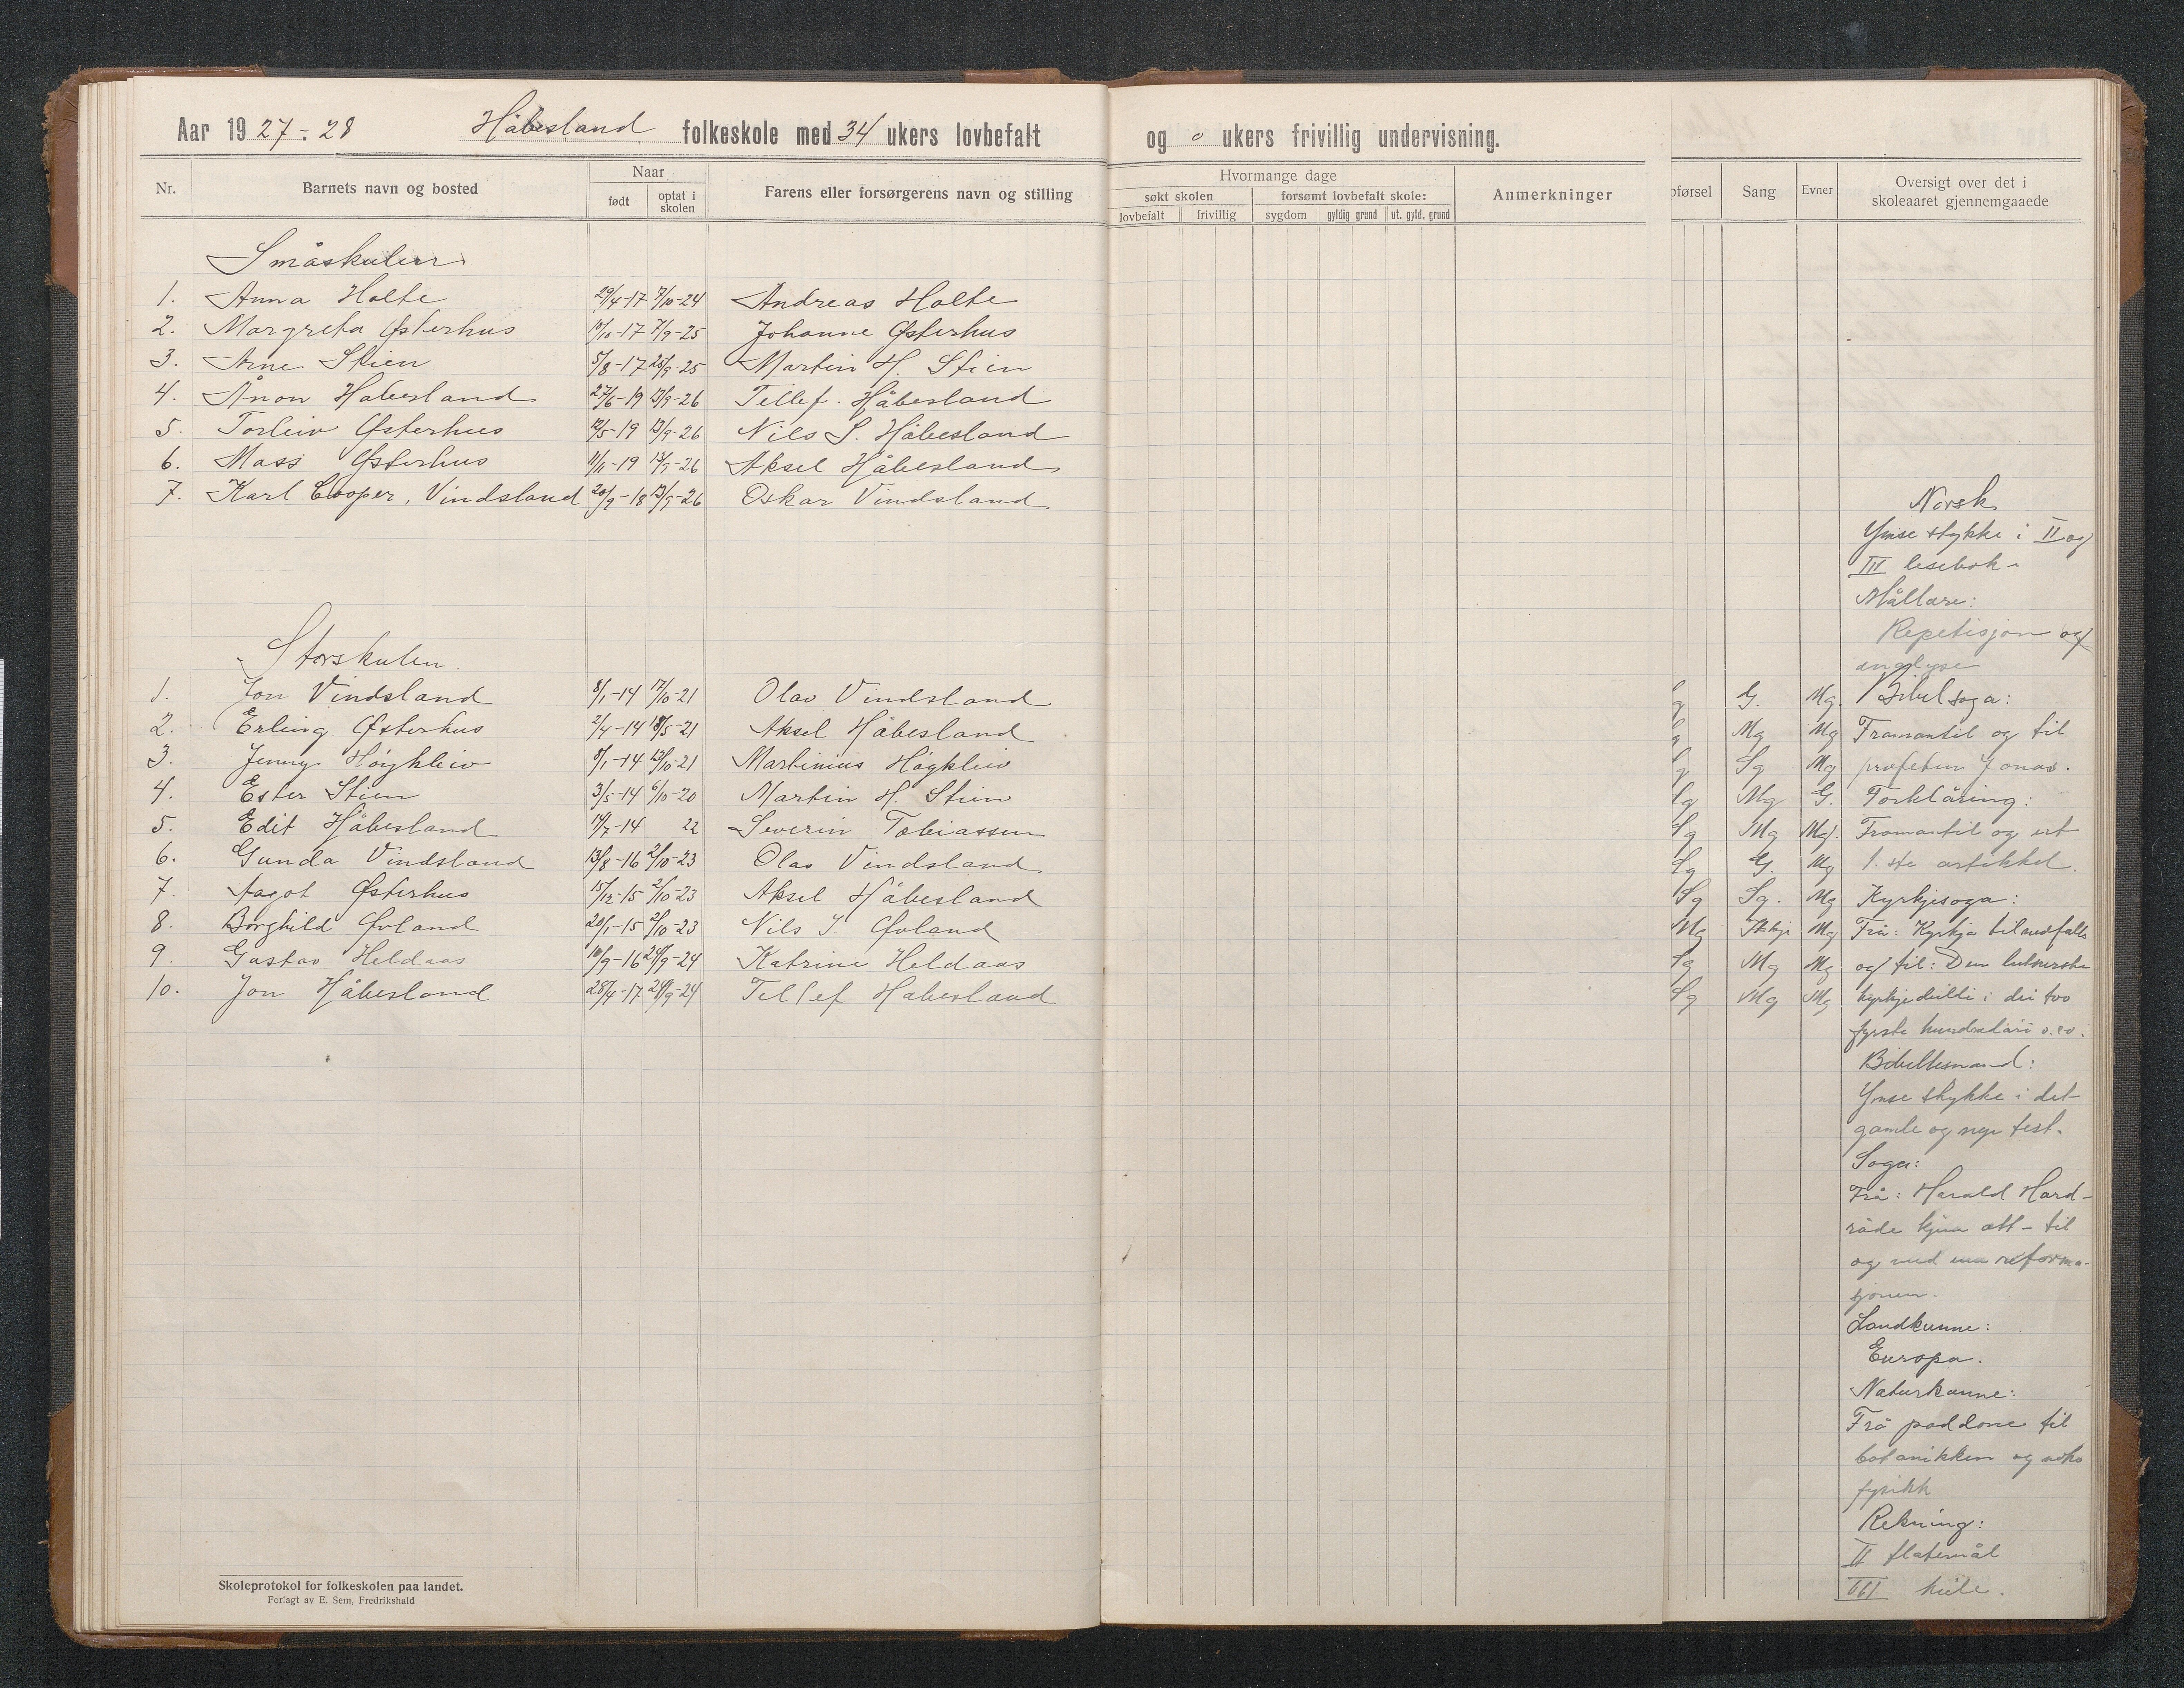 Aar 1927-28 Håbesland folkeskole med 34 ukers lovbefalt og 0 ukers frivillig undervisning.
Nr. Barnets navn og bosted Naar født optat i skolen Farens eller forsørgerens navn og stilling
Hvormange dage
søkt skolen forsømt lovbefalt skole: Anmerkninger
lovbefalt frivillig sygdom gyldig grund ut. gyld. grund
oførsel Sang Evner Oversigt over det i skoleaaret gjennemgaaede
Småskulen
1. Anna Holte 29/4-17 7/10-24 Andreas Holte
2. Margreta Østerhus 10/10-17 7/9-25 Johanne Østerhus
3. Arne Stien 5/8-17 25/9-25 Martin H. Stien
4. Ånon Håbesland 27/6-19 13/9-26 Tellef Håbesland
5. Torleiv Østerhus 12/5-19 13/9-26 Nils S. Håbesland
6. Mass Østerhus 11/11-19 13/9-26 Aksel Håbesland
7. Karl Cooper, Vindsland 20/9-18 13/9-26 Oskar Vindsland
Storskulen.
1. Jon Vindsland 8/1-14 17/10-21 Olav Vindsland G. Mg.
2. Erling Østerhus 2/4-14 18/5-21 Aksel Håbesland Mg Mg
3. Jenny Høigkleiv 8/1-14 13/10-21 Martinius Høgkleiv Sg Mg
4. Ester Stien 3/5-14 6/10-20 Martin H. Stien Sg Mg G.
5. Edit Håbesland 14/7-14 22 Severin Tobiassen Sg Mg Mg.
6. Gunda Vindsland 13/8-16 2/10-23 Olav Vindsland Sg G. Mg
7. Aagot Østerhus 15/12-15 2/10-23 Aksel Håbesland Sg Sg. Mg
8. Borghild Øvland 20/1-15 2/10-23 Nils J. Øvland Mg Ikkje Mg
9. Gustav Heldaas 10/9-16 24/9-24 Katrine Heldaas Sg Mg Mg
10. Jon Håbesland 28/4-17 24/9-24 Tellef Håbesland Sg Mg Mg
Norsk
Ymse stykke i II og
III lesebok -
Mållære:
Repetisjon og
analyse
Bibelsoga:
Framantil og til
profeten Jonas.
Forklåring:
Framantil og ut
1.ste artikkel.
Kyrkjesoga:
Frå: Kyrkja til nedfalls
og til: Den lutherske
kyrkje i dei tvo
fyrste hundradåri o.s.v.
Bibellesnad:
Ymse stykke i det
gamle og nye test.
Soga:
Frå: Harald Hard-
råde kjem att - til
og med reforma-
sjonen.
Landkunne:
Europa.
Naturkunne:
Frå paddone til
botanikken og noko
fysikk
Rekning:
II flatemål
III kule.
Skoleprotokol for folkeskolen paa landet.
Forlagt av E. Sem, Fredrikshald